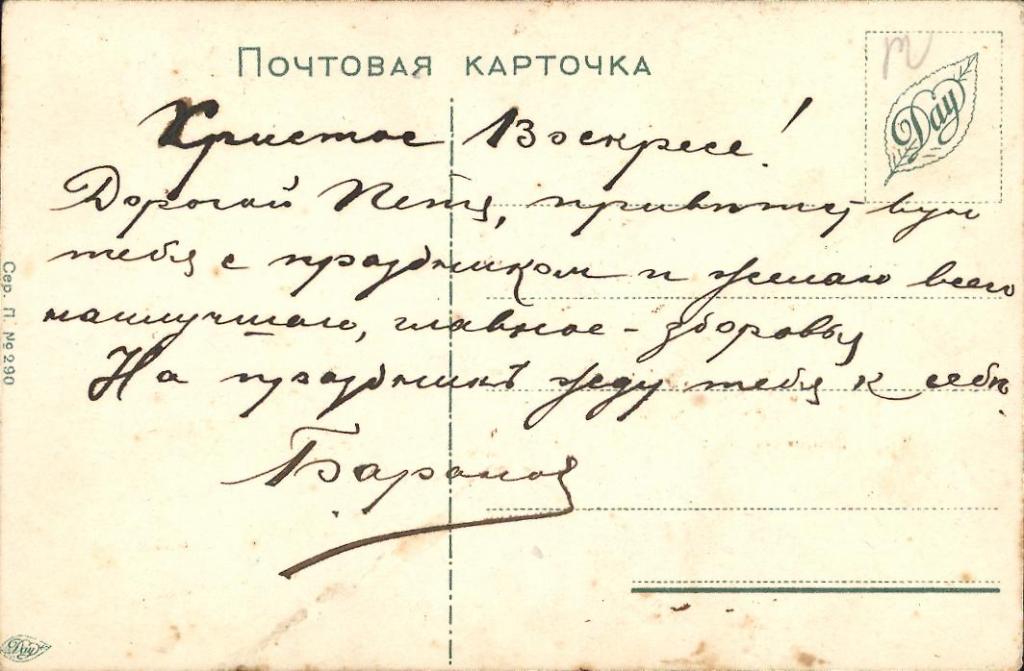 Почтовая карточка
Христос Воскресе!
Дорогой Петя, приветствую
тебя с праздником и желаю всего
наилучшаго, главное - здоровья
На праздникъ жду тебя к себѣ.
Баранов
Day
Сер. П. № 290
Day